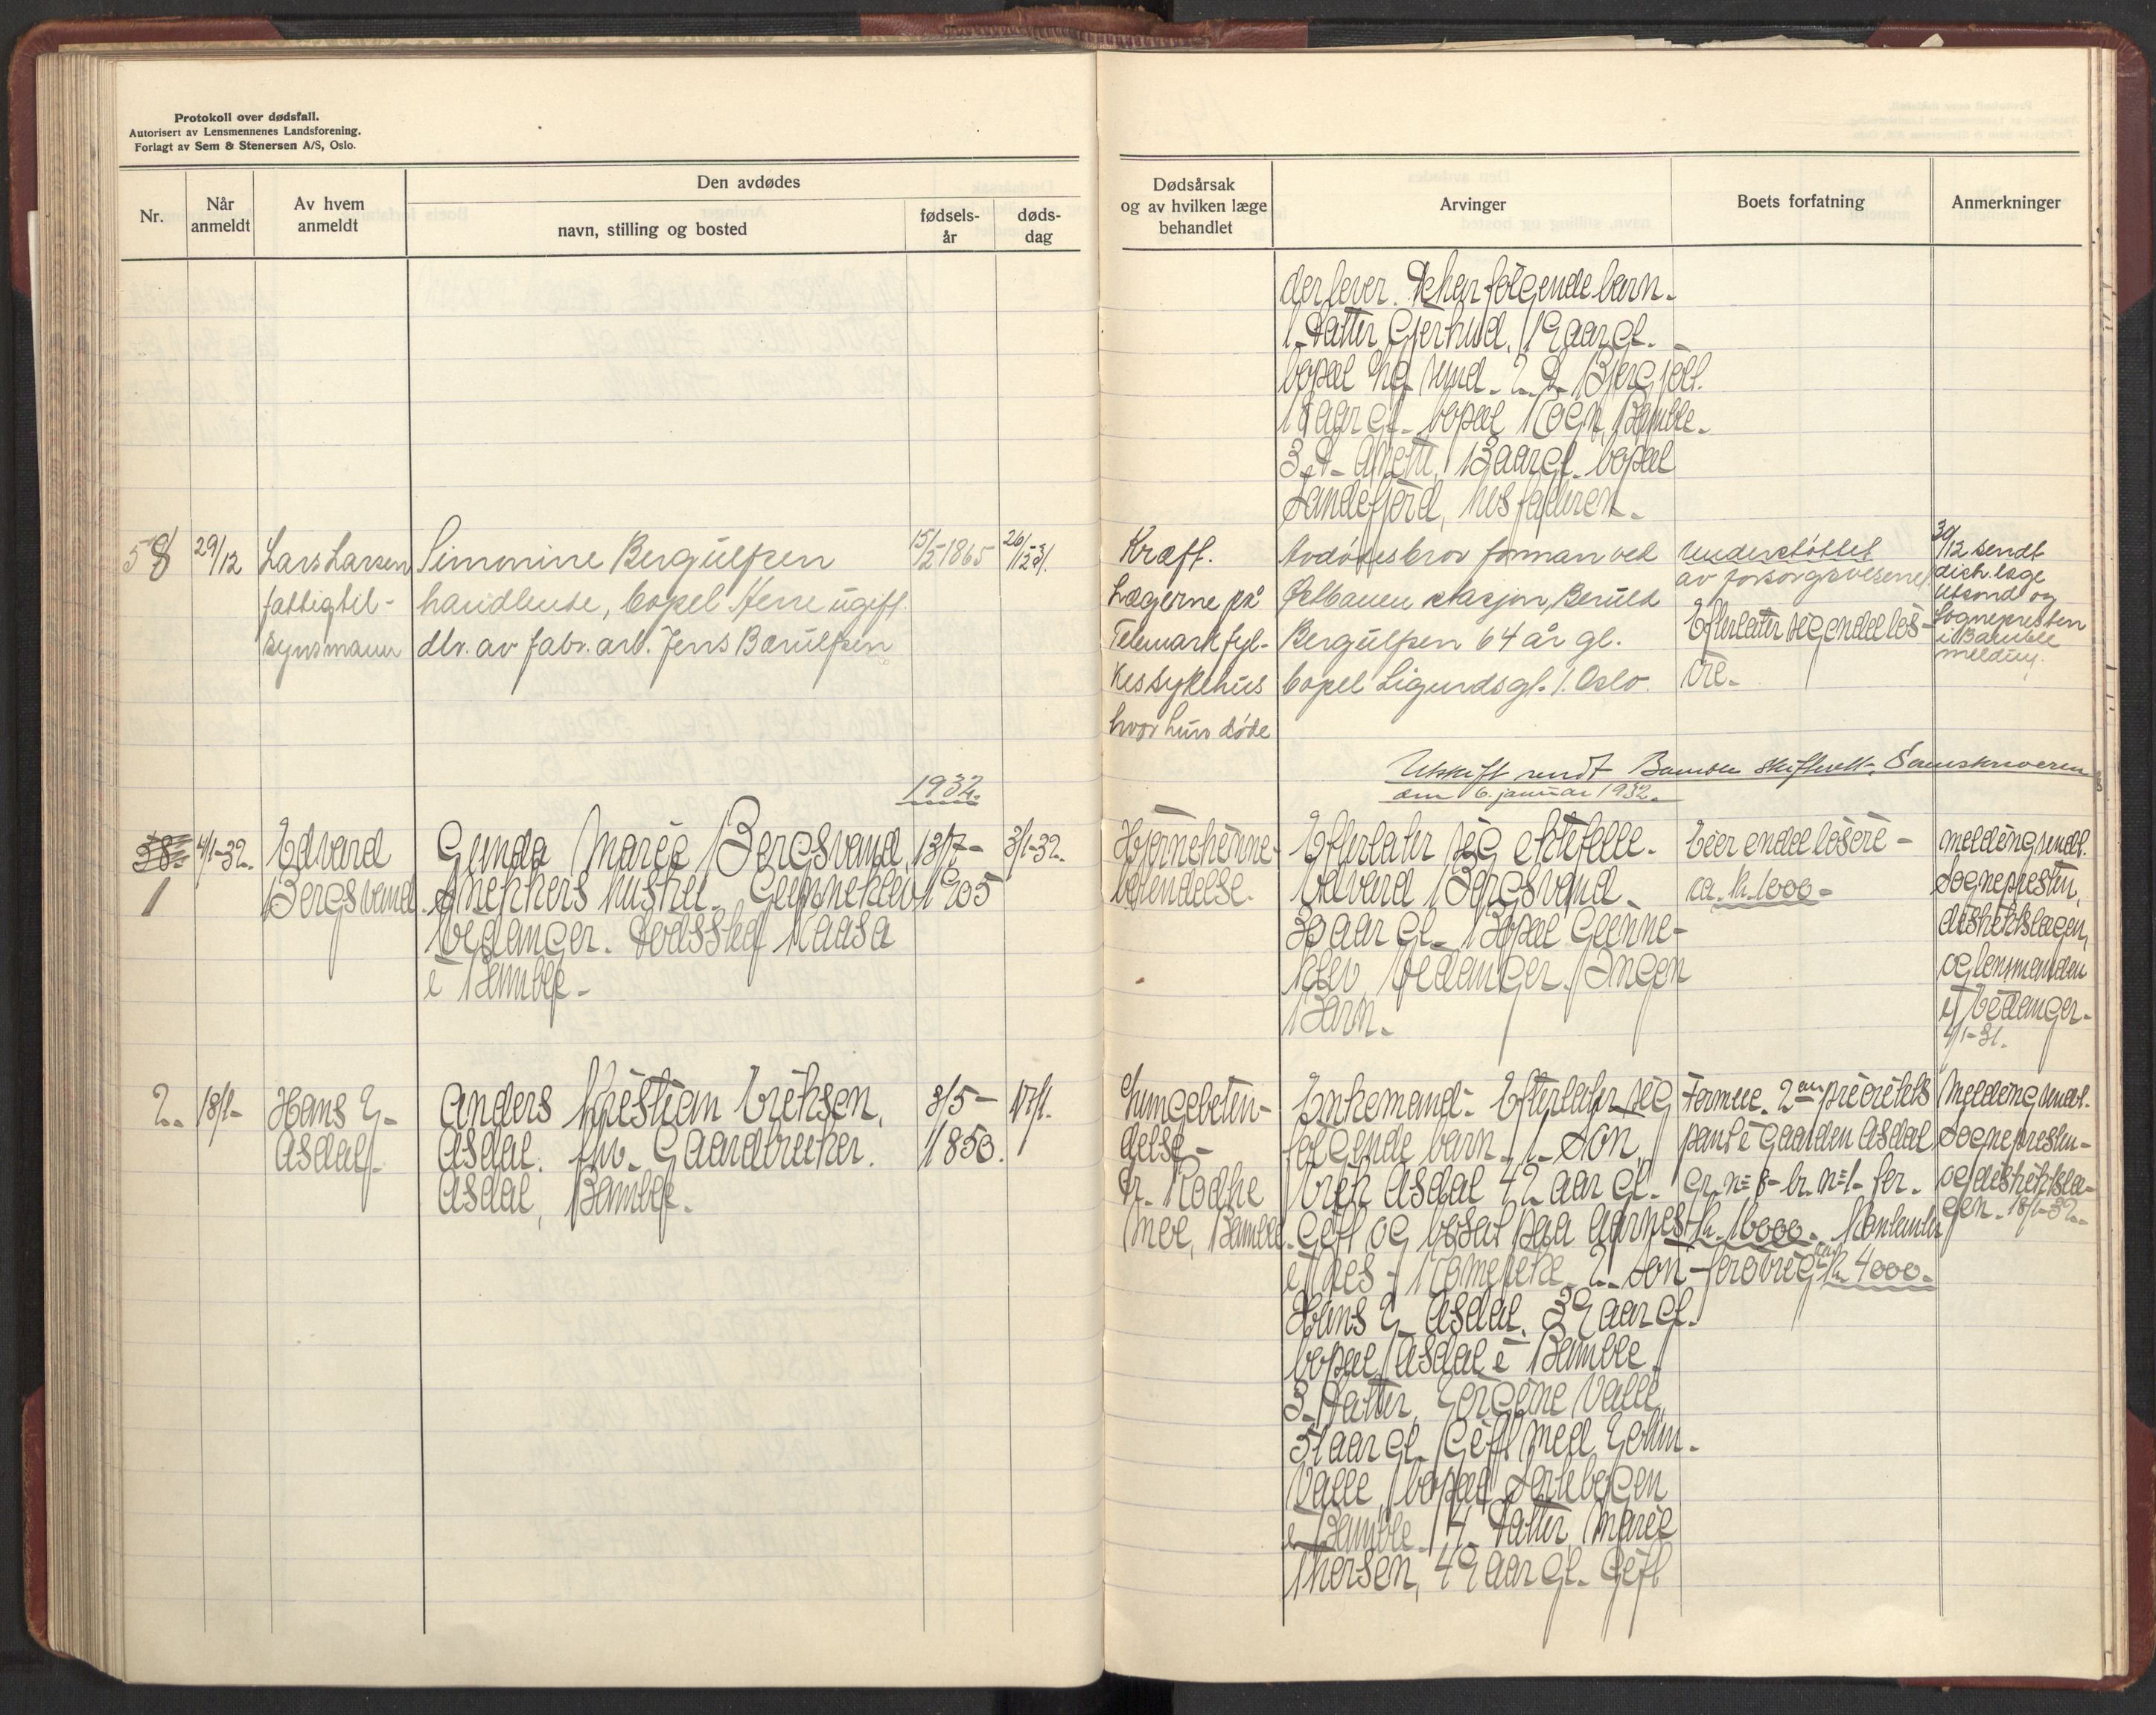 Protokoll over dødsfall.
Autorisert av Lensmennenes Landsforening.
Forlagt av Sem & Stenersen A/S, Oslo.
Nr.
Når
anmeldt
Av hvem
anmeldt
Den avdødes
navn, stilling og bosted
fødsels-
år
døds-
dag
Dødsårsak
og av hvilken læge
behandlet
Arvinger
Boets forfatning
Anmerkninger
der lever. følgende barn.
1. Datter Gjertrud, 19 aar gl.
bopæl 2. d.
18 aar gl. bopæl Bamble.
3. d. 13 aar gl. bopæl
Sandefjord, hos faderen.
58
29/12
Lars Larsen
fattigtil-
synsmann
Simonine Bergulfsen
handlende, bopel Herre ugift.
dtr. av fabr. arb. Jens Bærulfsen
15/5 1865
26/12 31.
Kræft.
Lægerne på
Telemark fyl-
kessykehus
hvor hun døde
Avdødes bror forman ved
Østbanen stasjon, Berult
Bergulfsen 64 år gl.
bopel Sigurdsgt. 1. Oslo.
Understøttet
av forsorgsvesenet
Efterlater sig endel løs-
øre.
30/12 sendt
distr. læge
Utsond og
Sognepresten
i Bamble
melding.
1932.
Utskrift sendt Bamble skifterett, Sorenskriveren
den 6. januar 1932.
58.
1
4/1-32.
Edvard
Bergsvand
Gunda Marie Bergsvand,
Snekkers hustru. Gunneklev
Eidanger. Dødssted Aasa
i Bamble.
13/7-
1905
3/1-32.
Hjernehinne-
betendelse.
Efterlater sig ektefelle.
Edvard Bergsvand.
aar gl. Bopæl Gunne-
klev, Eidanger. Ingen
Barn.
Eier endel løsøre -
ca. kr. 1000-
Melding sendt.
Sognepresten,
distriktslægen,
og lensmanden
i Eidanger.
4/1-31.
2.
18/1-
Hans E.
Asdal.
Anders Kristian Eriksen,
Asdal. fhv. Gaardbruker.
Asdal, Bamble.
3/5-
1850.
17/1.
Lungebeten-
delse -
Dr. Rodhe
Moe, Bamble.
Enkemand. Efterlater sig
følgende barn. 1. Søn,
Erik Asdal 42 aar gl.
Gift og bosat paa Aarnes
i 2. Søn
Hans E. Asdal, 39 aar gl.
bopæl Asdal i Bamble.
3. Datter, Valle,
51 aar gl. Gift med
Valle, bopæl
i Bamble. 4. Datter, Marie
Thorsen, 49 aar gl. Gift
Formue. 2den prioritets
pant i Gaarden Asdal
gr. nr. 8 br. nr. 1. for.
kr. 16000. Kontanter
forøvrig ca. kr. 4000.
Melding sendt.
Sognepresten
og distriktslæ-
gen. 18/1-32.